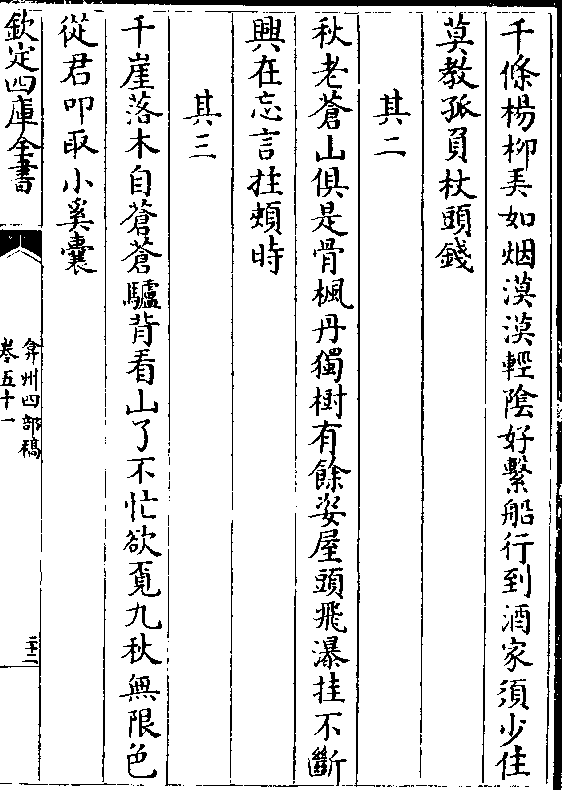 千條楊柳弄如烟漠漠輕陰好繫船行到酒家須少住
莫教孤負杖頭錢
其二
秋老蒼山俱是骨楓丹獨樹有餘姿屋頭飛瀑挂不斷
興在忘言拄頰時
其三
千崖落木自蒼蒼驢背看山了不忙欲覔九秋無限色
從君叩取小奚囊
欽定四庫全書
弇州四部稿
卷五十一
二十二